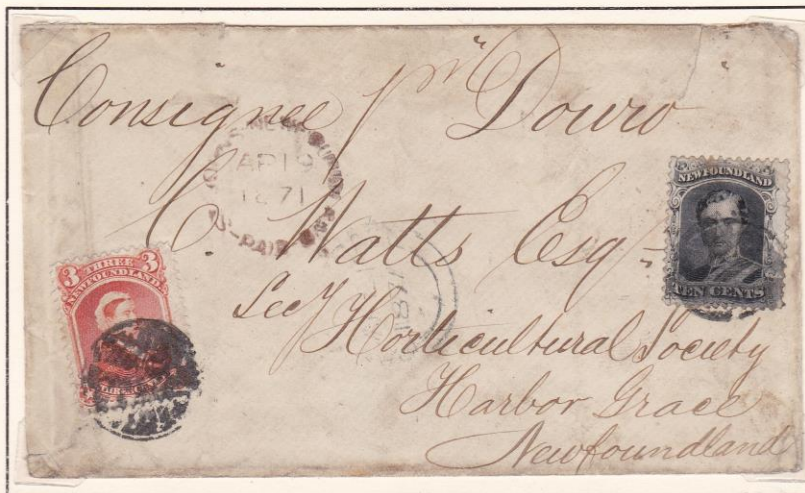 Consignee pr Douro
AP 19
1871
C. Watts Esqr
Secy Horticultural Society
Harbor Grace
Newfoundland
3 THREE 3
NEWFOUNDLAND
NEWFOUNDLAND
TEN CENTS